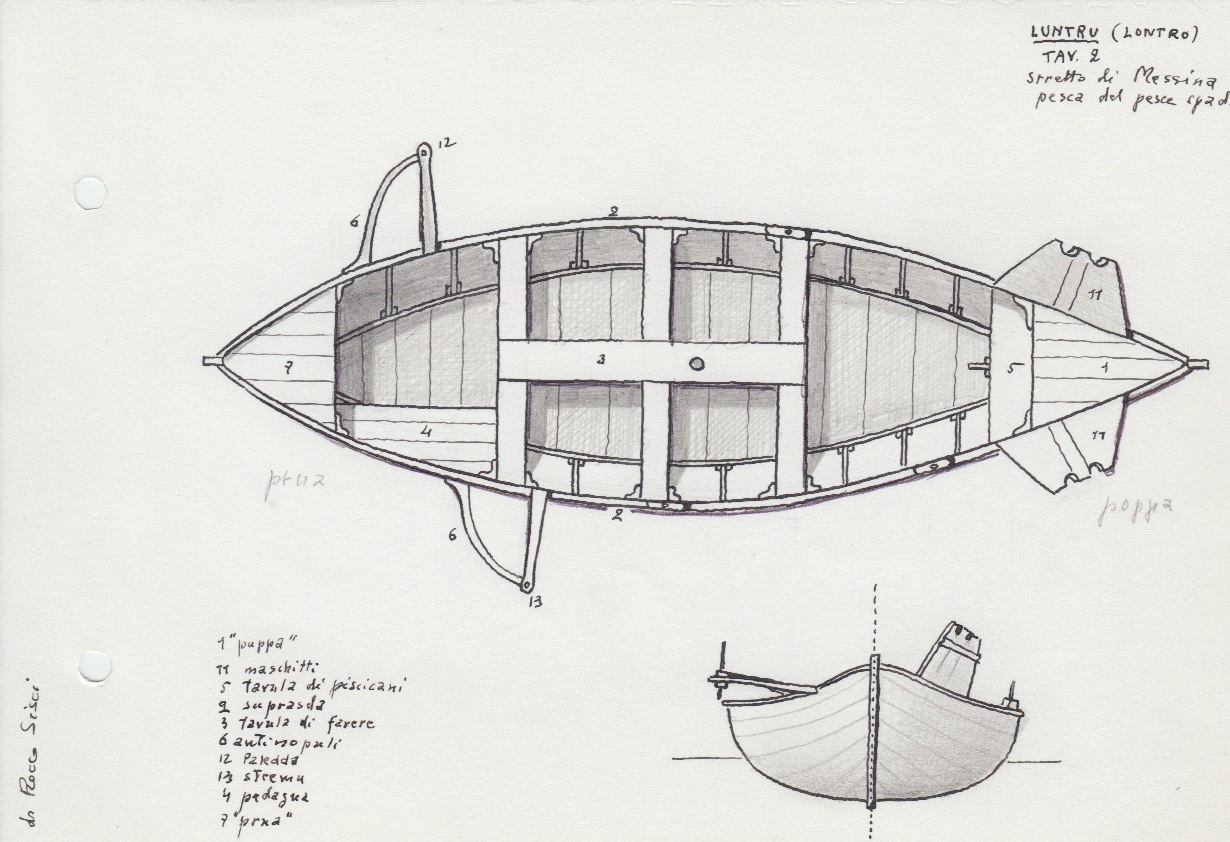 LUNTRU (LONTRO)
TAV. 2
stretto di Messina
pesca del pesce spad
12
6
2
11
7
3
5
1
4
11
prua
poppa
6
2
13
1 "puppa"
11 maschitti
5 tavula di piscicani
2 suprasda
3 tavula di farere
6 antinopuli
12 Paledda
13 stremu
4 pedagna
7 "prua"
da Rocco Sisci